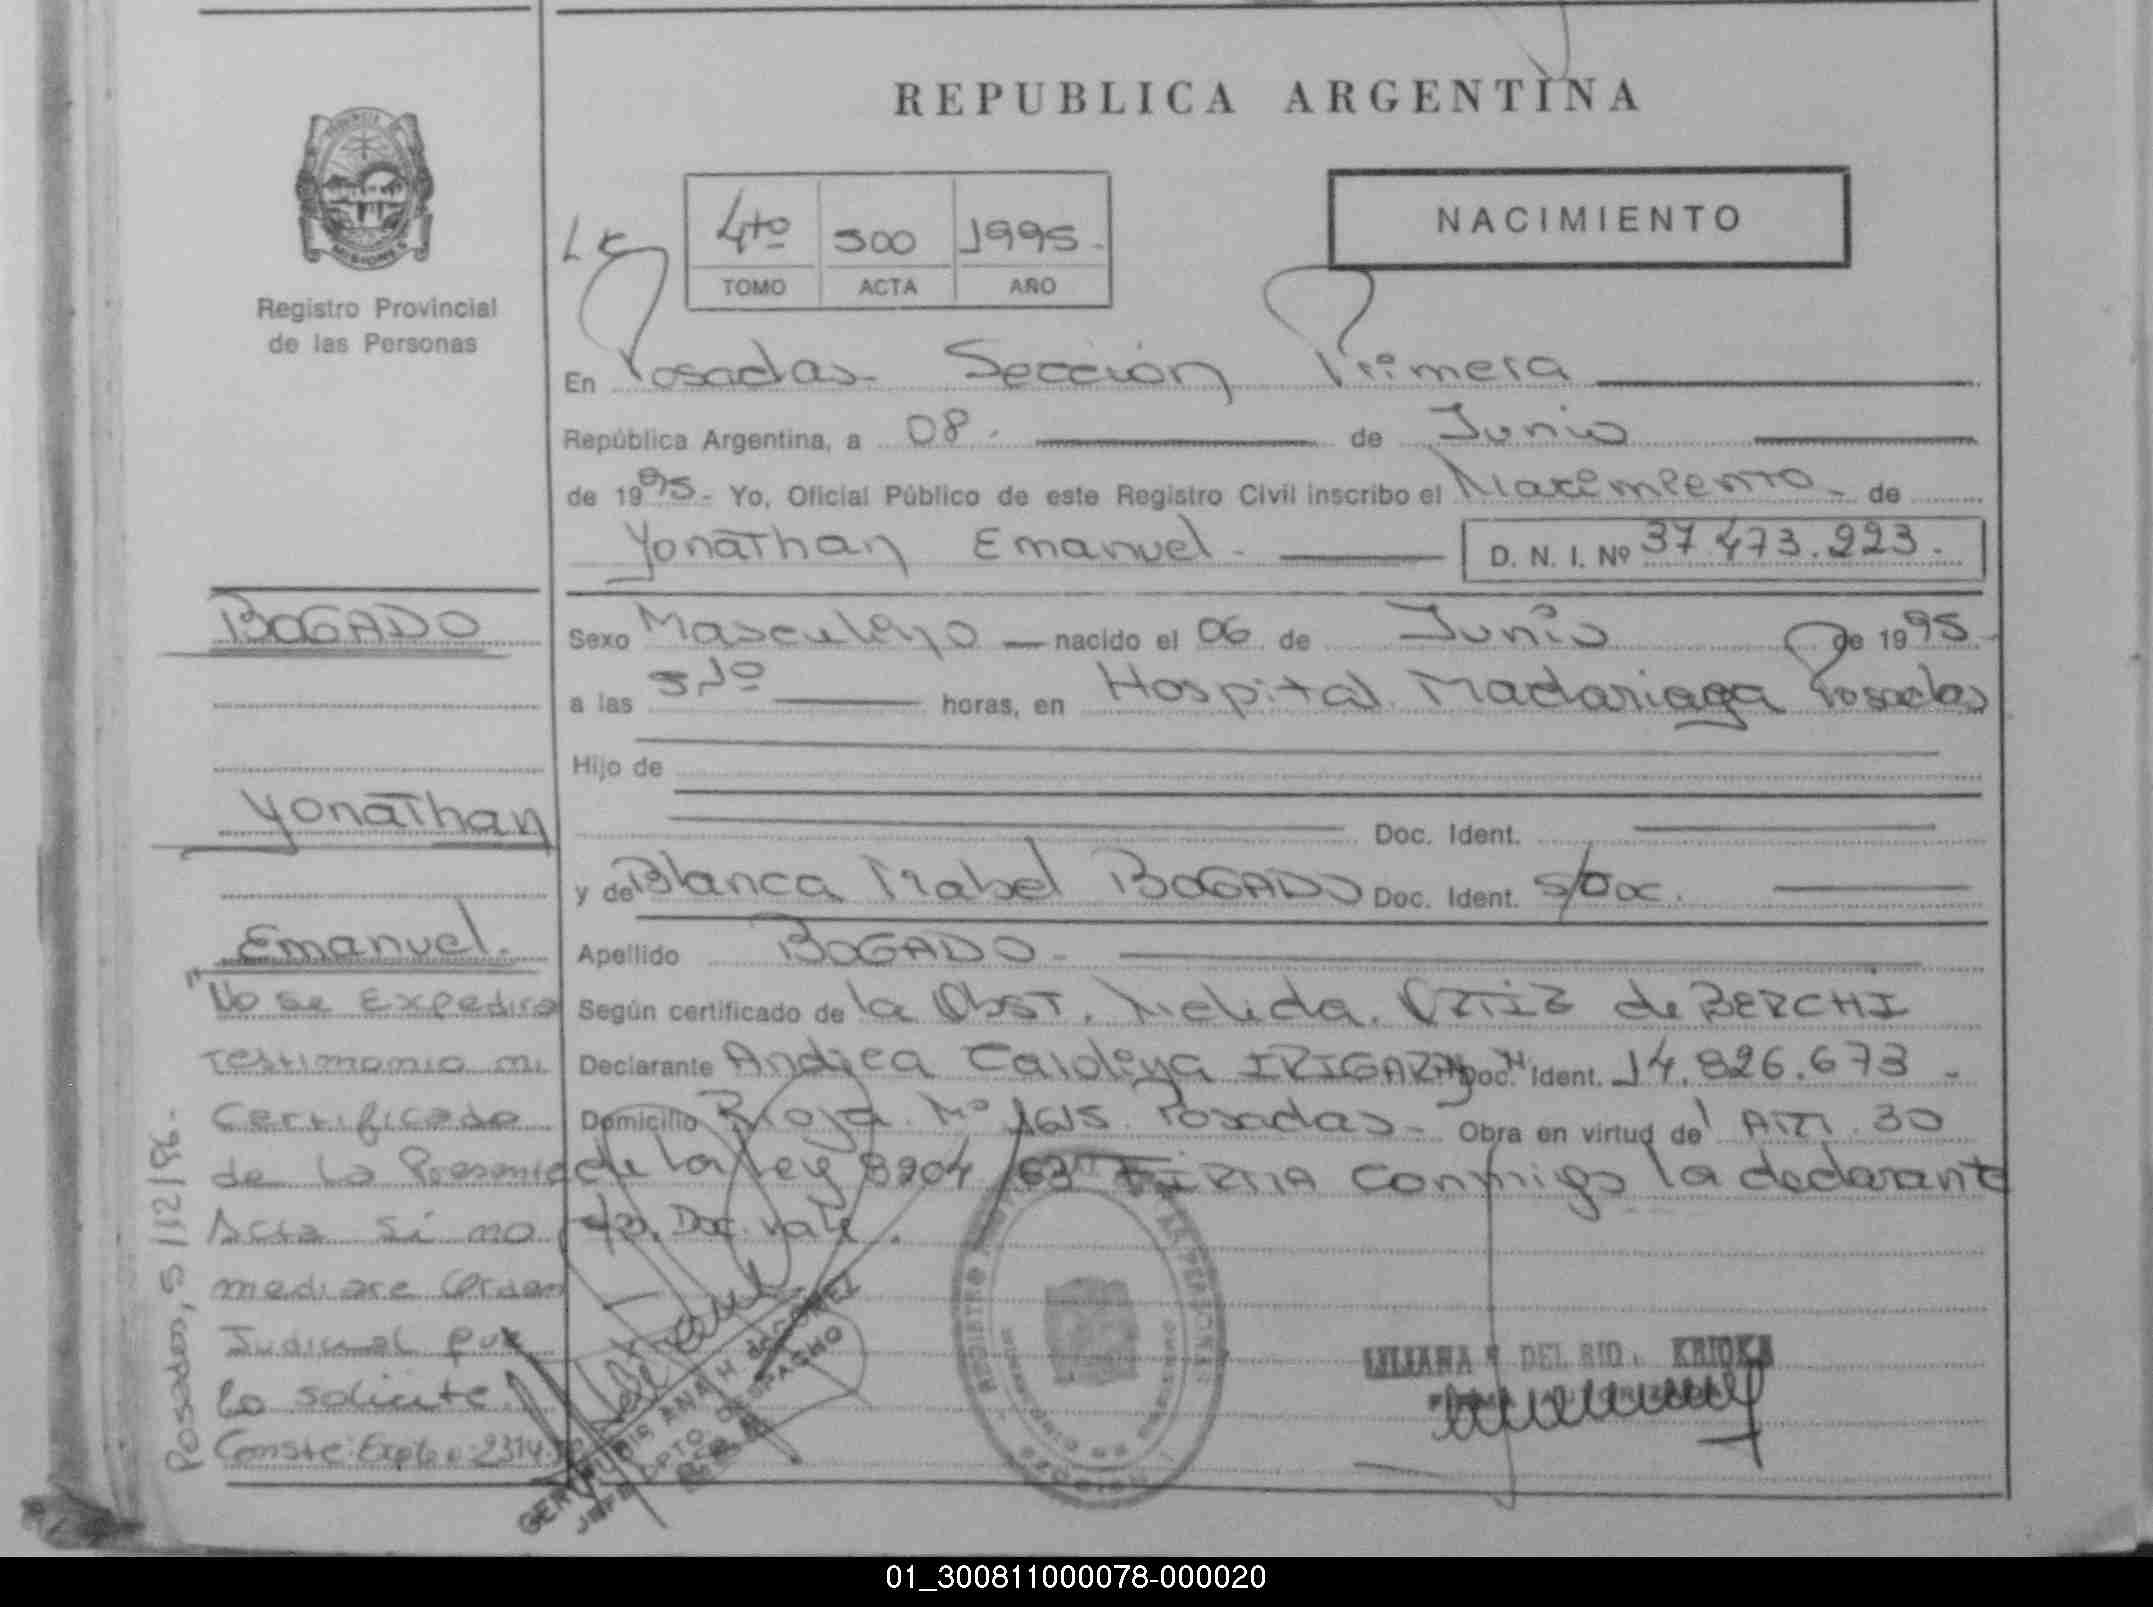 REPUBLICA ARGENTINA
Registro Provincial
de las Personas
4to 500 1995.
TOMO ACTA AÑO
NACIMIENTO
En Posadas Sección Primera
República Argentina, a 08. de Junio
de 1995.- Yo, Oficial Público de este Registro Civil inscribo el Nacimiento de
Yonathan Emanuel. D. N. I. Nº 37.473.223.
BOGADO
Sexo Masculino nacido el 06 de Junio de 1995.
a las horas, en Hospital Madariaga Posadas
Hijo de
Yonathan
Doc. Ident.
y de Blanca Mabel BOGADO Doc. Ident. s/Doc.
Emanuel.
Apellido BOGADO.
Según certificado de la Obst. Nelida ORTIZ de BERCHI
Declarante Andrea Carolina IRIGARAY Doc. Ident. 14.826.673
Domicilio Rioja Nº 1615 Posadas Obra en virtud de Art. 30
de la Ley 8204/63 FIRMA conmigo la declarante
s/Doc. Vale.
"No se Expedira
Testimonio ni
Certificado
de la Presente
Acta si no
mediare Orden
Judicial que
lo solicite.
Conste: Expte
Posadas, 5/12/96.-
DPTO. DESPACHO
LILIANA DEL RIO
01_300811000078-000020